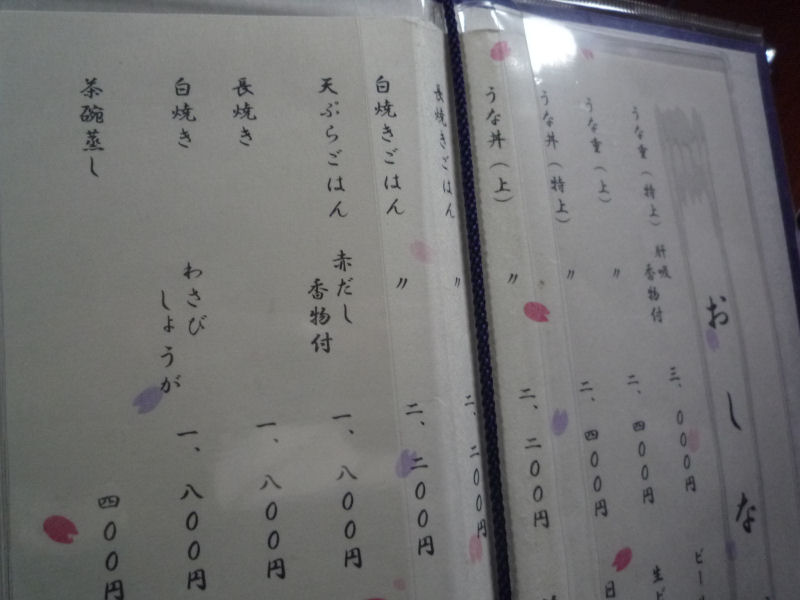 おしな
うな重（特上） 肝吸 香物付 三、〇〇〇円
うな重（上） 〃 二、四〇〇円
うな丼（特上） 〃 二、四〇〇円
うな丼（上） 〃 二、二〇〇円
長焼きごはん 〃 二、二〇〇円
白焼きごはん 〃 二、二〇〇円
天ぷらごはん 赤だし 香物付 一、八〇〇円
長焼き 一、八〇〇円
白焼き わさび しょうが 一、八〇〇円
茶碗蒸し 四〇〇円
ビー
生ビ
日